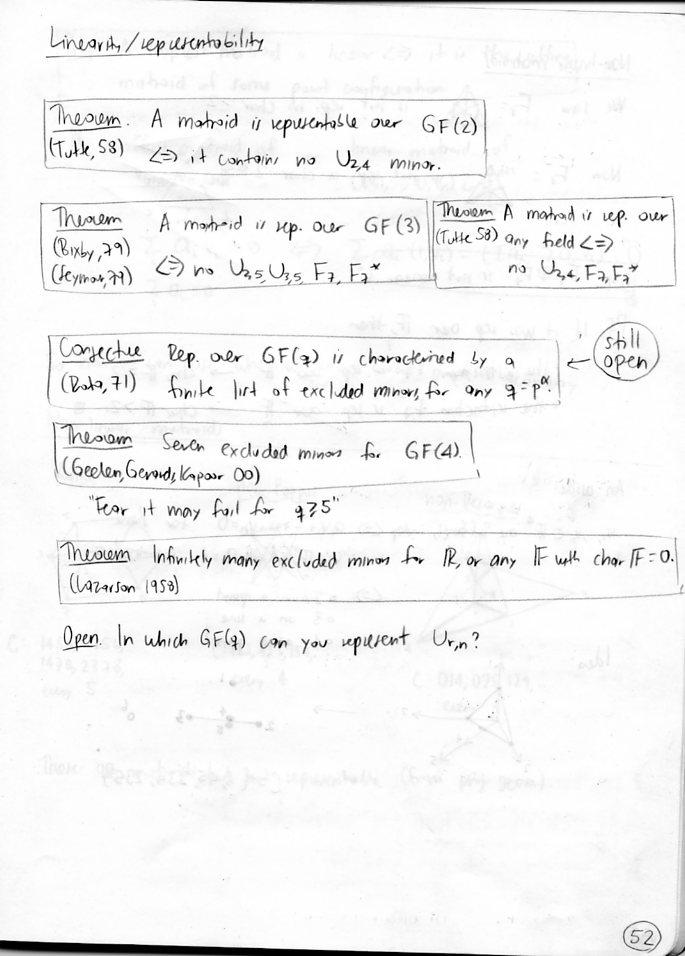 Linearity/representability
Theorem. A matroid is representable over GF(2)
(Tutte, 58) <=> it contains no U2,4 minor.
Theorem A matroid is rep. over GF(3)
(Bixby, 79)
(Seymour, 79) <=> no U2,5, U3,5, F7, F7*
Theorem A matroid is rep. over
(Tutte 58) any field <=>
no U2,4, F7, F7*
Conjecture Rep. over GF(q) is characterized by a
(Rota, 71) finite list of excluded minors, for any q=p^α.
still
open
Theorem Seven excluded minors for GF(4).
(Geelen, Gerards, Kapoor 00)
"Fear it may fail for q≥5"
Theorem Infinitely many excluded minors for ℝ, or any 𝔽 with char 𝔽=0.
(Lazarson 1958)
Open. In which GF(q) can you represent Ur,n?
52